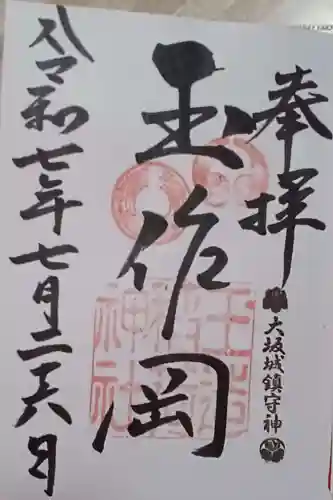 奉拝
大坂城鎮守神
玉作岡
令和七年七月二十六日